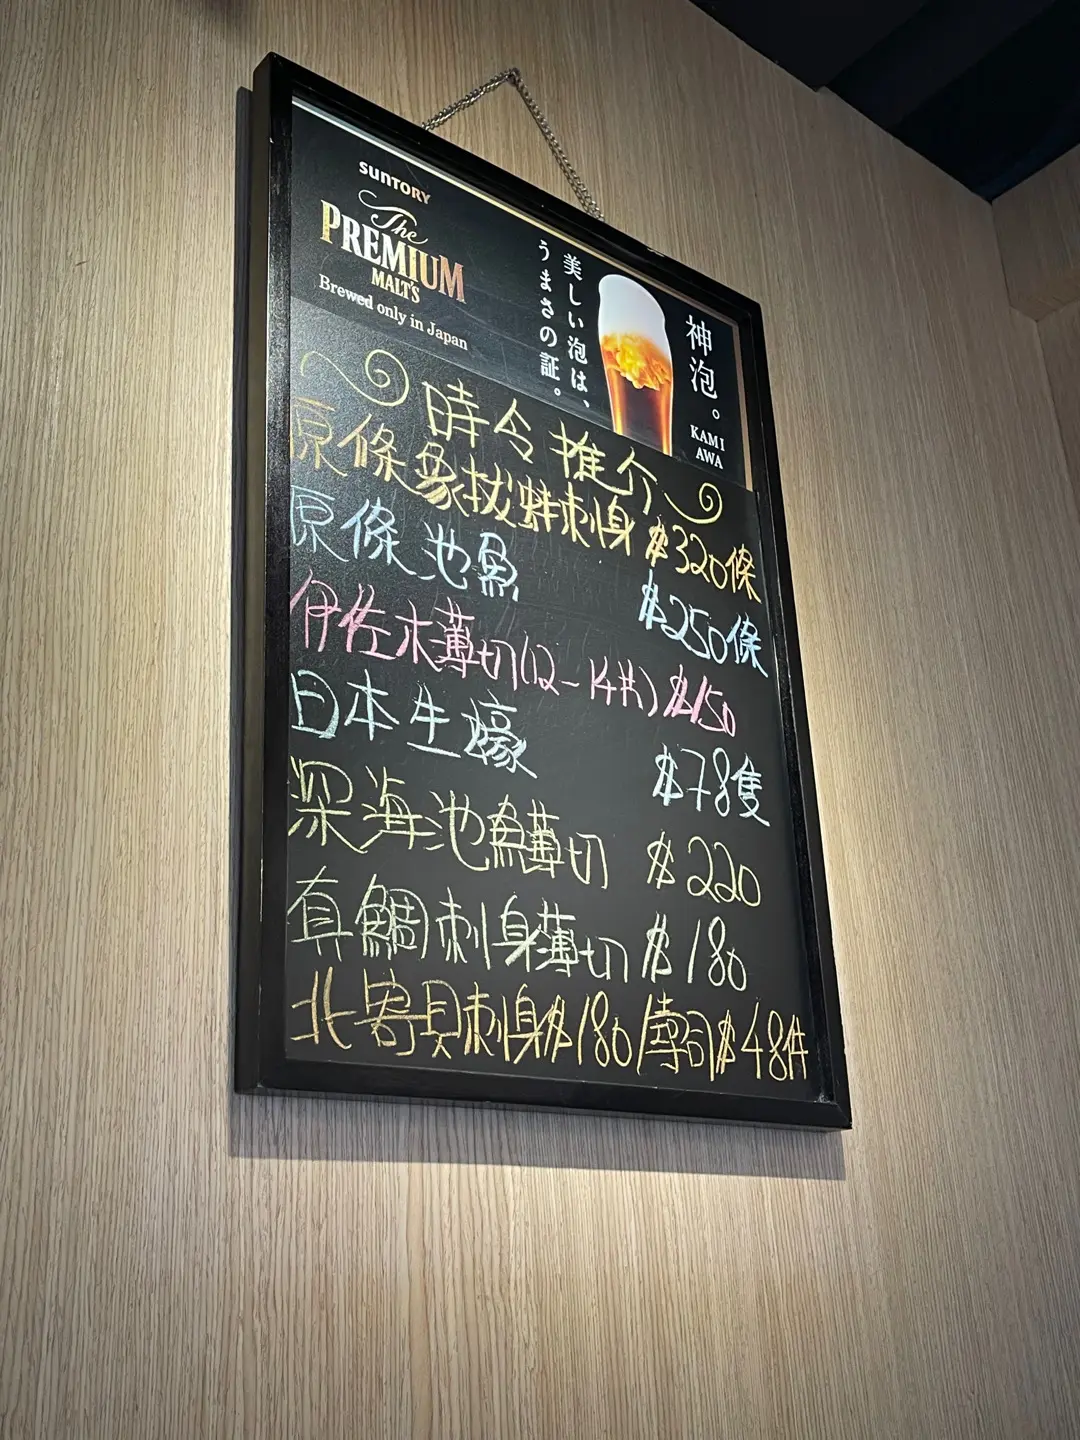 SUNTORY
The
PREMIUM
MALT'S
Brewed only in Japan
美しい泡は、
うまさの証。
神泡。
KAMI
AWA
時令推介
原條象拔蚌刺身 $320條
原條池魚 $250條
伊佐木薄切(12-14片) $150
日本生蠔 $78隻
深海池魚薄切 $220
真鯛刺身薄切 $180
北寄貝刺身$180/壽司$48件